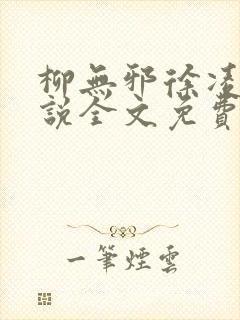 柳無邪徐凌
說全文免費
一筆煙雲